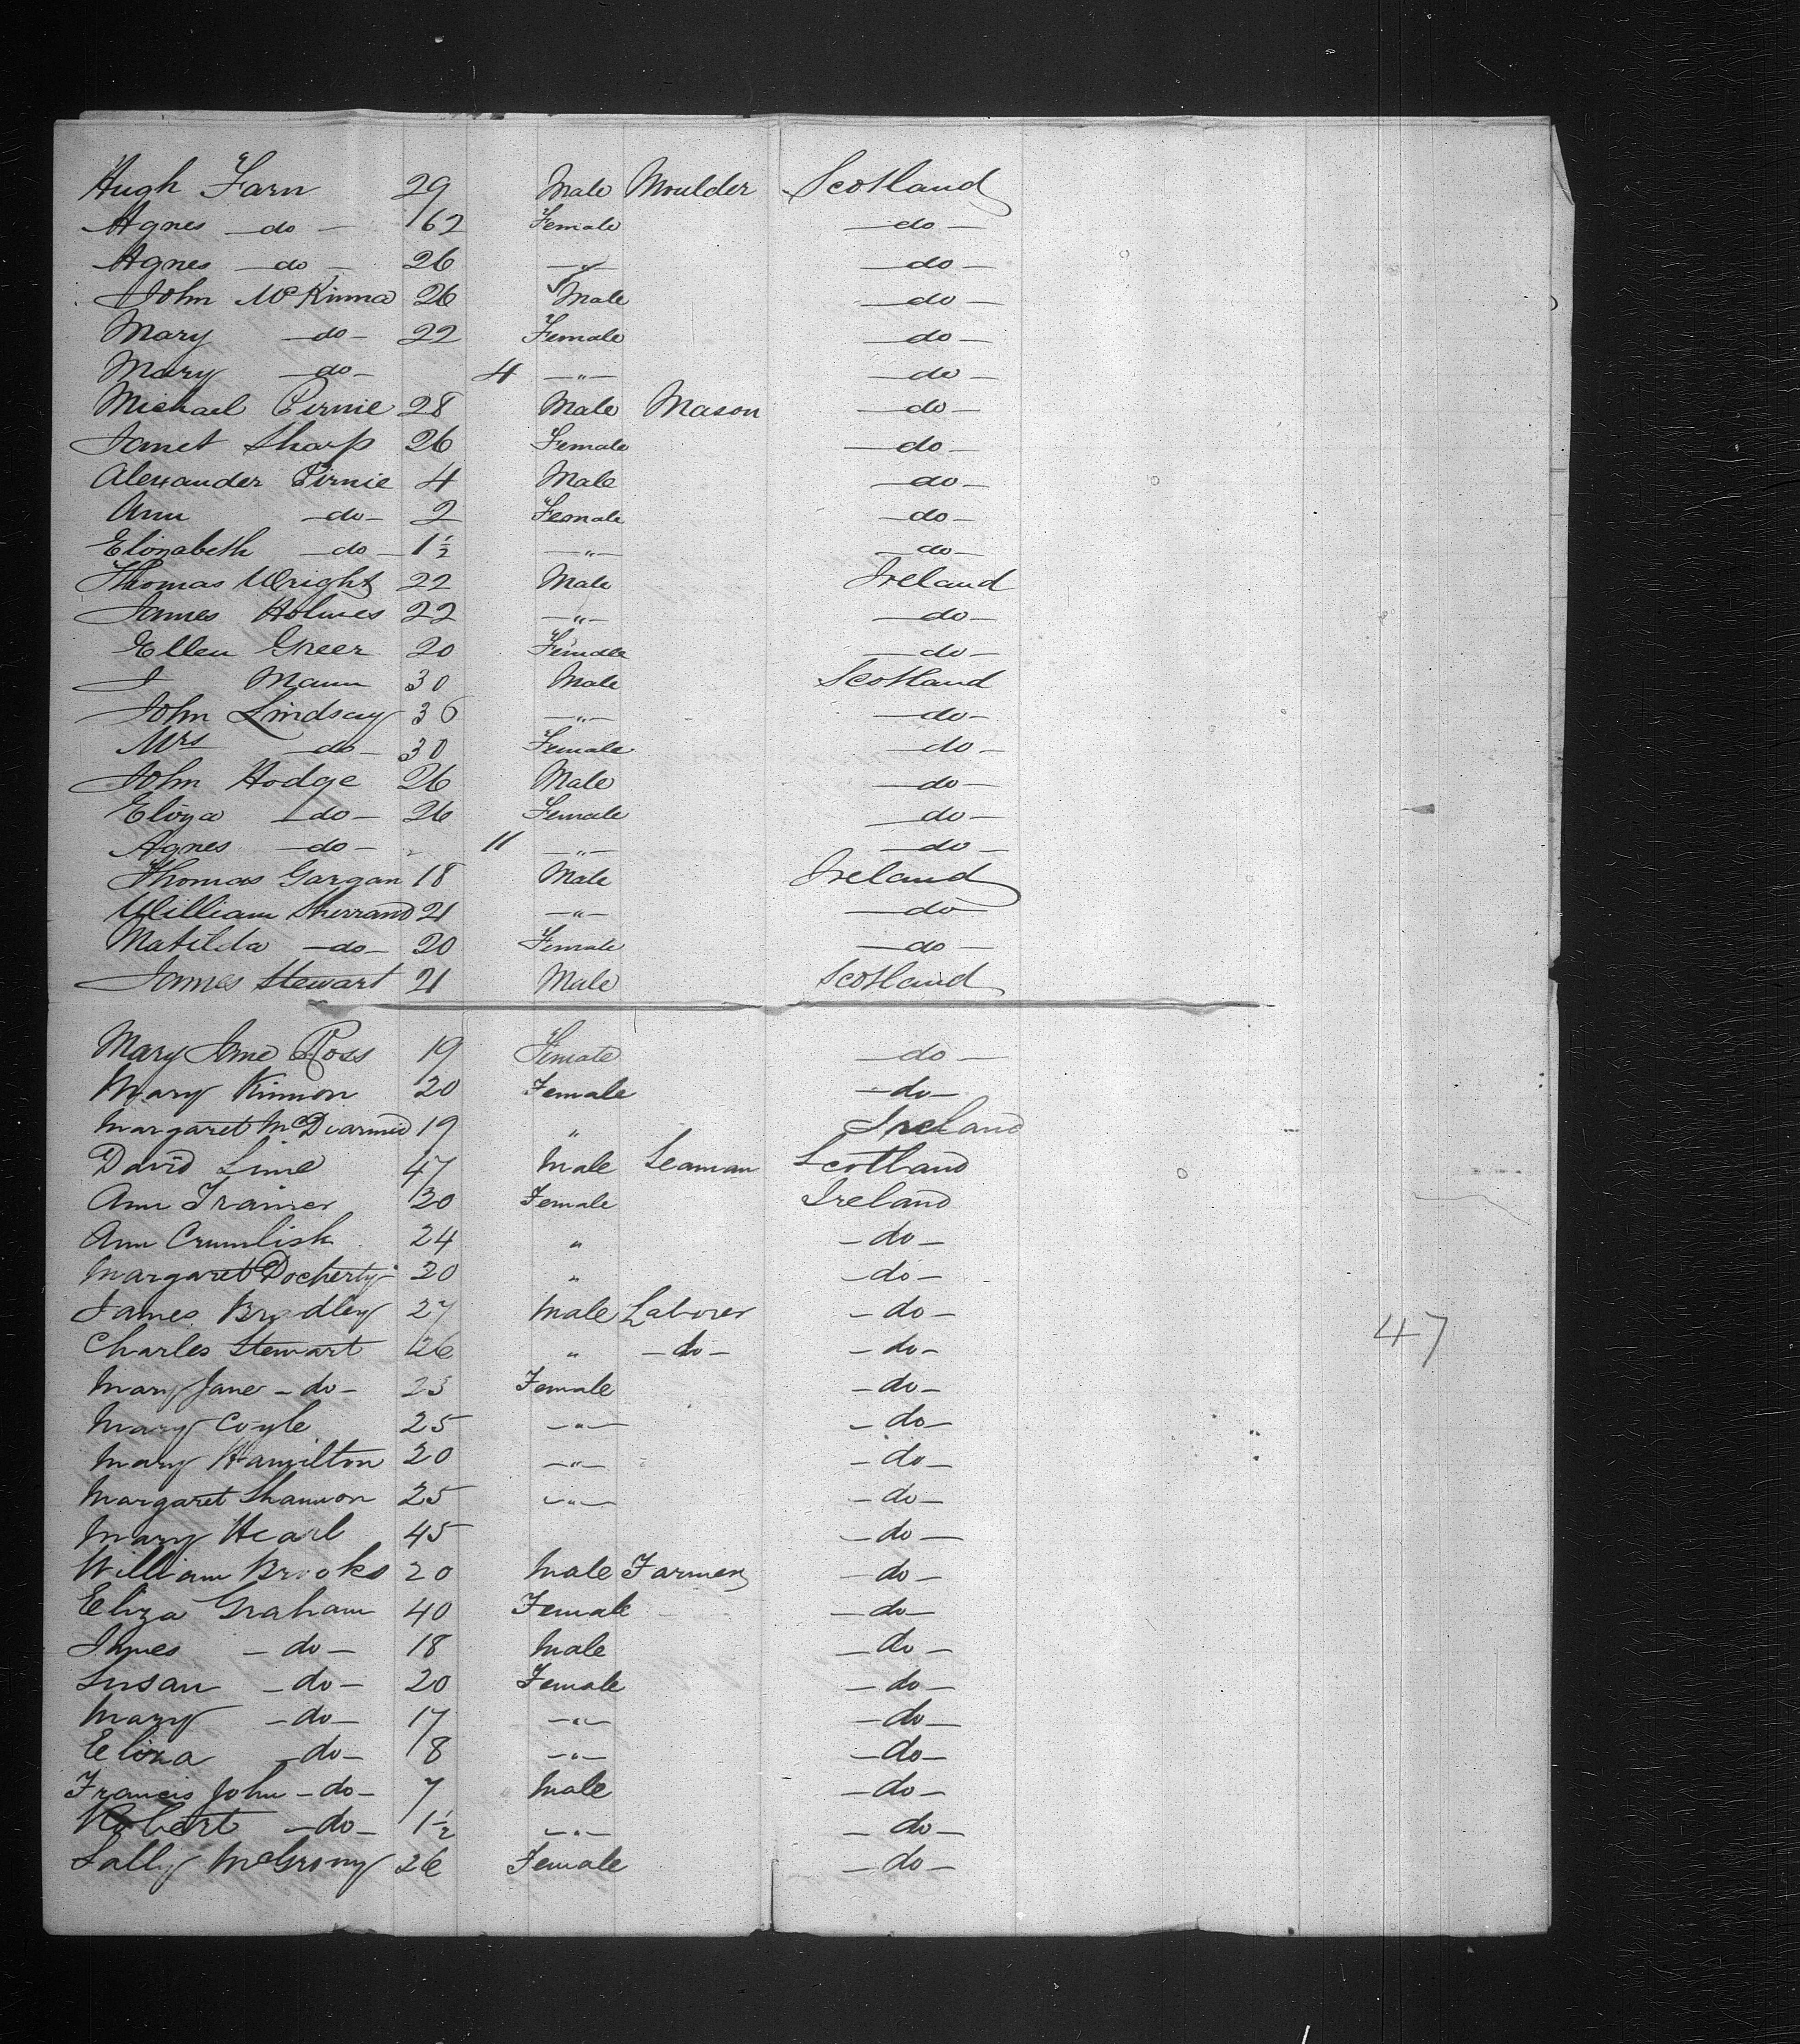 Hugh Farn 29 Male Moulder Scotland
Agnes —do— 62 Female —do—
Agnes —do— 26 —"— —do—
John McKinna 26 Male —do—
Mary —do— 22 Female —do—
Mary —do— 4 —"— —do—
Michael Pirnie 28 Male Mason —do—
Janet Sharp 26 Female —do—
Alexander Pirnie 4 Male —do—
Ann —do— 2 Female —do—
Elizabeth —do— 1½ —"— —do—
Thomas Wright 22 Male Ireland
James Holmes 22 —"— —do—
Ellen Greer 20 Female —do—
J Mann 30 Male Scotland
John Lindsay 36 —"— —do—
Mrs —do— 30 Female —do—
John Hodge 26 Male —do—
Eliza —do— 26 Female —do—
Agnes —do— 11 —"— —do—
Thomas Gargan 18 Male Ireland
William Sherrand 21 —"— —do—
Matilda —do— 20 Female —do—
James Stewart 21 Male Scotland
Mary Jane Ross 19 Female —do—
Mary Kinnon 20 Female —do—
Margaret McDiarmid 19 " Ireland
David Lime 47 Male Seaman Scotland
Ann Trainer 20 Female Ireland
Ann Crumlish 24 " —do—
Margaret Docherty 20 " —do—
James Bradley 27 Male Laborer —do—
Charles Stewart 26 " —do— —do—
Mary Jane —do— 23 Female —do—
Mary Coyle 25 —"— —do—
Mary Hamilton 20 —"— —do—
Margaret Shannon 25 —"— —do—
Mary Hearl 45 —do—
William Brooks 20 Male Farmer —do—
Eliza Graham 40 Female —do—
James —do— 18 Male —do—
Susan —do— 20 Female —do—
Mary —do— 17 —"— —do—
Eliza —do— 8 —"— —do—
Francis John —do— 7 Male —do—
Robert —do— 1½ —"— —do—
Sally 26 Female —do—
47